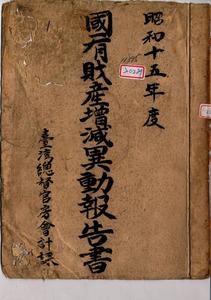 昭和十五年度
國有財產增減異動報告書
臺灣總督官房會計課